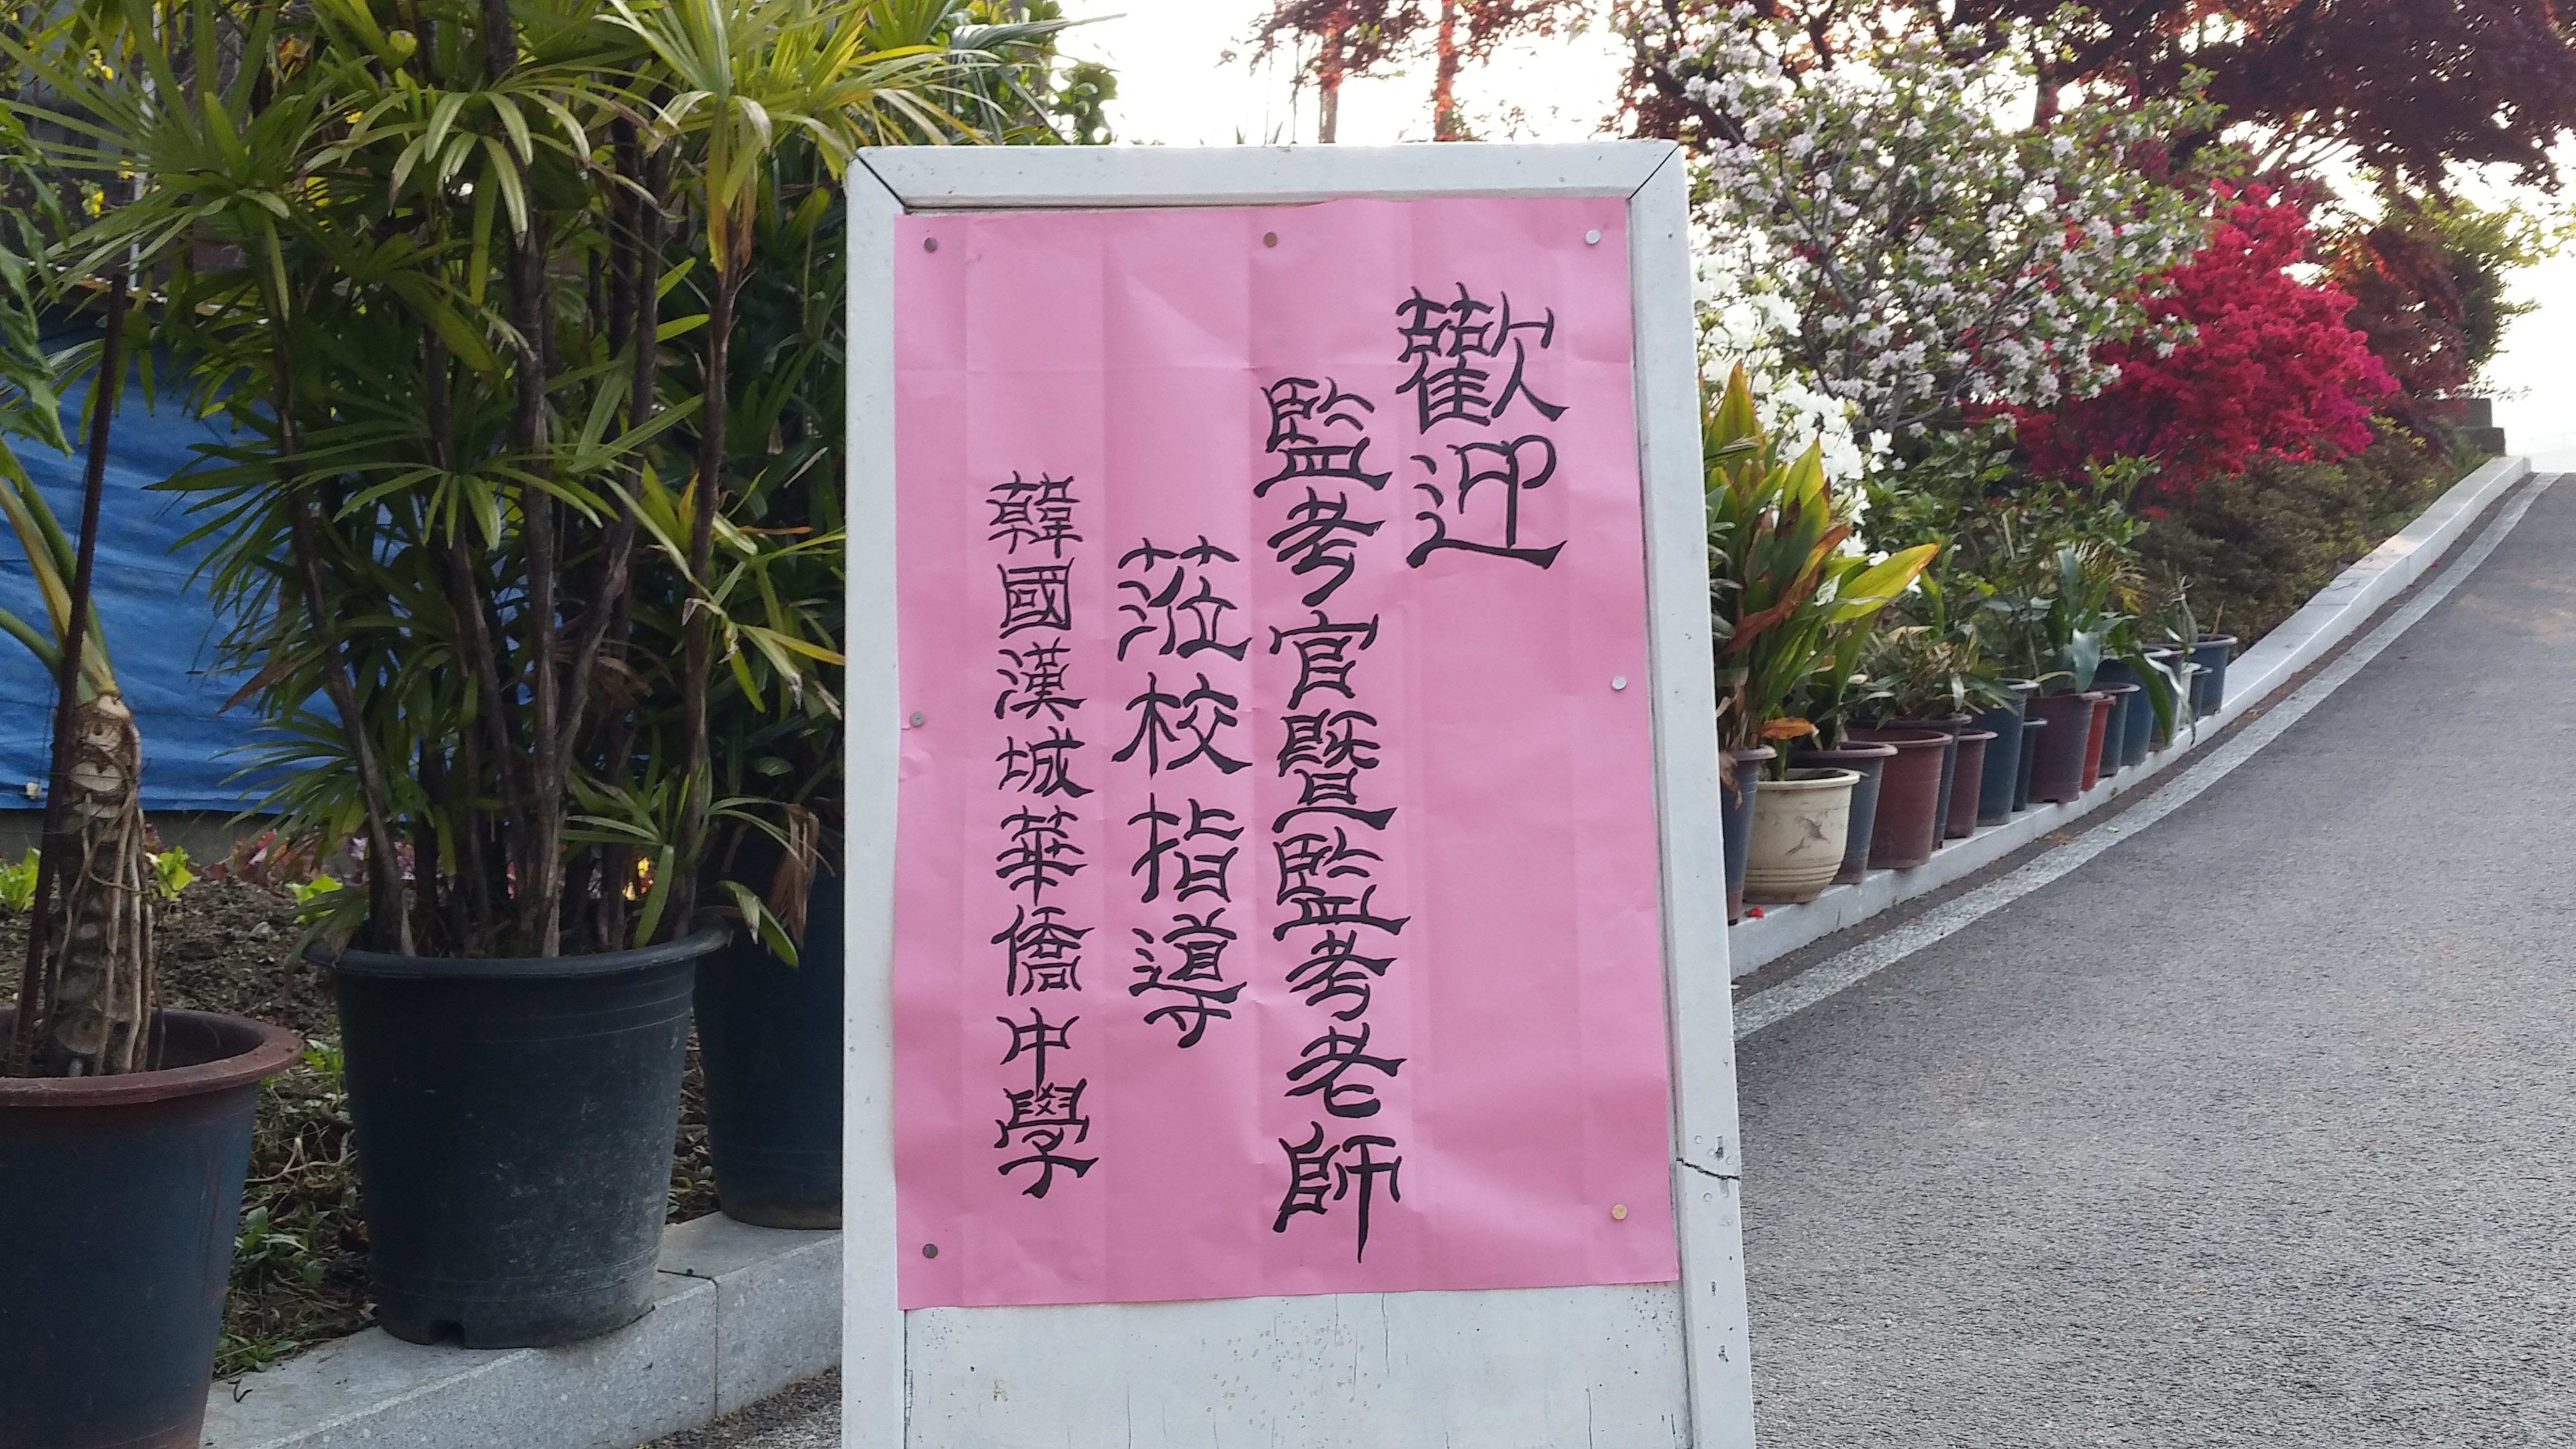 歡迎
監考官暨監考老師
蒞校指導
韓國漢城華僑中學